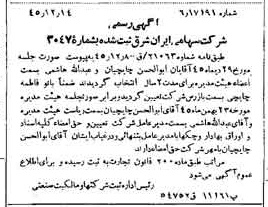 شماره ۶/۱۷۱۹۱ ۴۵/۱۲/۱۴
آگهی رسمی
شرکت سهامی ایران شرق ثبت شده بشمارهٔ ۳۰۴۷
طبق نامه شماره ۶/۲۱۰۶۳–۴۵/۱۲/۸ به پیوست صورت جلسه
مورخ ۲۹ دیماه ۴۵ آقایان ابوالحسن چایچیان و عبدالله هاشمی بسمت
اعضاء هیئت مدیره برای مدت ۲ سال انتخاب گردیدند ضمناً بانو فاطمه
چایچی بسمت بازرس شرکت تعیین گردید و برابر صورت جلسه هیئت مدیره
مورخ ۲۳ بهمن ماه ۴۵ آقای ابوالحسن چایچیان بسمت ریاست هیئت مدیره
و آقای عبدالله هاشمی بسمت مدیرعامل شرکت تعیین و حق امضاء کلیه اسناد
و اوراق بهادار و چکها با مدیرعامل به تنهائی و در غیاب ایشان آقای ابوالحسن
چایچیان با مهر شرکت حق امضاء دارند.
مراتب طبق ماده ۲۰۰ قانون تجارت به ثبت رسیده و برای اطلاع
عموم آگهی میشود
رئیس اداره ثبت شرکتها و مالکیت صنعتی
پ ۱۱۱۶۱ ف ۴۷۵۲